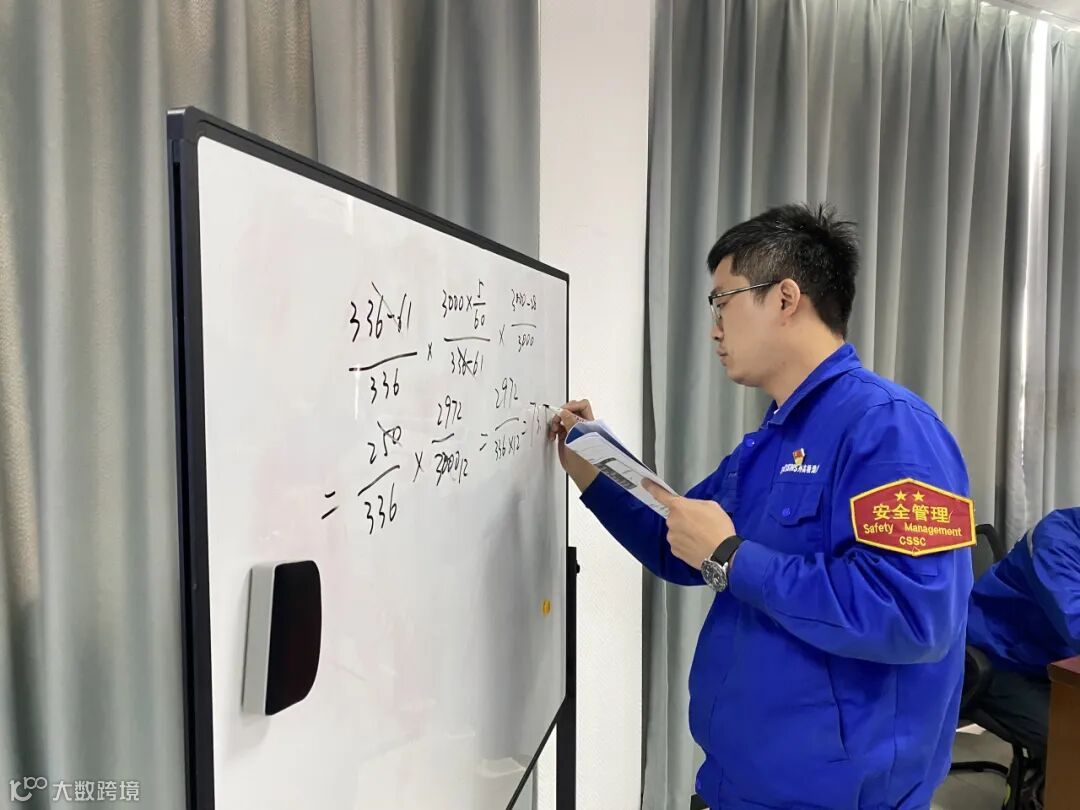 336-61
336
×
3000×5/60
336-61
×
3000-28
3000
=
250
336
×
2972
300012
=
2972
336×12
=73
安全管理
Safety Management
CSSC
大数跨境